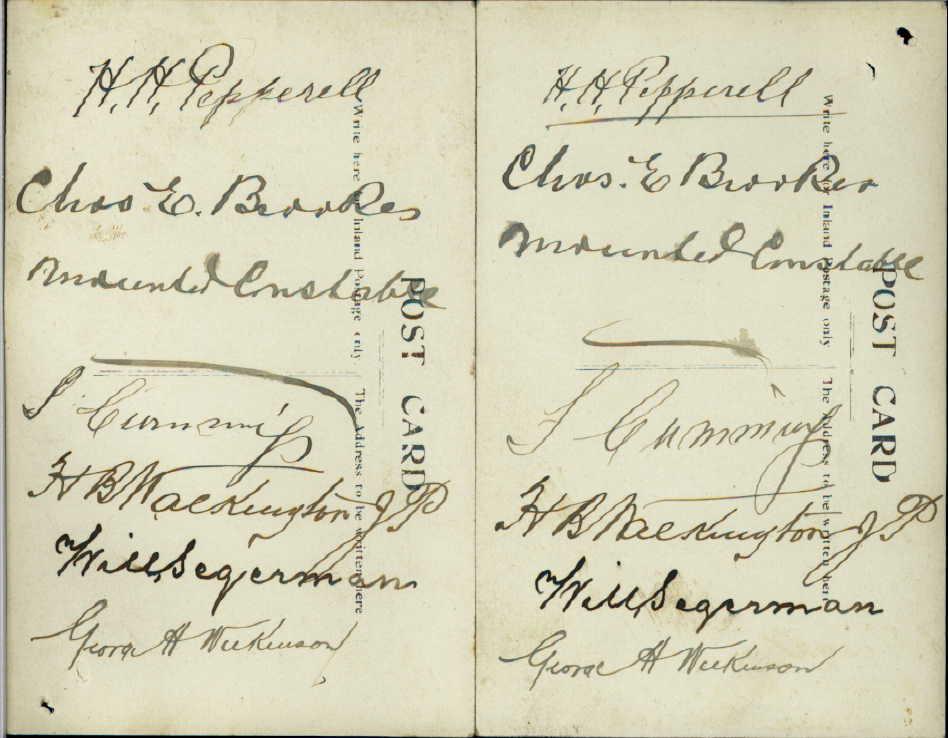 H. H. Pepperell
Chas E. Brookes
Mounted Constable
J Cumming
H B Walkington J P
Will Segerman
George H Wilkinson
Write here for Inland Postage only. The Address to be written here
POST CARD
H. H. Pepperell
Chas. E Brookes
Mounted Constable
J Cumming
H B Walkington J P
Will Segerman
George H Wilkinson
Write here for Inland Postage only The Address to be written here
POST CARD